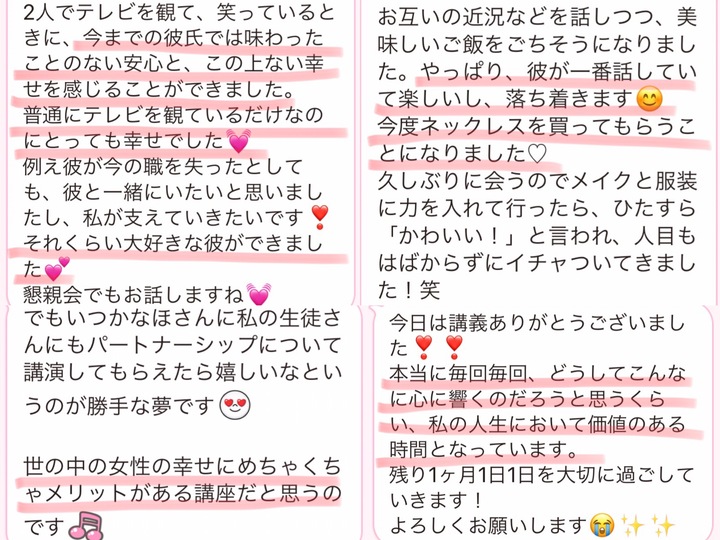 2人でテレビを観て、笑っているとき
きに、今までの彼氏では味わった
ことのない安心と、この上ない幸
せを感じることができました。
普通にテレビを観ているだけなの
にとっても幸せでした💓
例え彼が今の職を失ったとして
も、彼と一緒にいたいと思いまし
たし、私が支えていきたいです❣️
それくらい大好きな彼ができまし
た💕
懇親会でもお話しますね💓
お互いの近況などを話しつつ、美
味しいご飯をごちそうになりまし
た。やっぱり、彼が一番話してい
て楽しいし、落ち着きます😊
今度ネックレスを買ってもらうこ
とになりました♡
久しぶりに会うのでメイクと服装
に力を入れて行ったら、ひたすら
「かわいい！」と言われ、人目も
はばからずにイチャついてきまし
た！笑
でもいつかなほさんに私の生徒さ
んにもパートナーシップについて
講演してもらえたら嬉しいなとい
うのが勝手な夢です😍
世の中の女性の幸せにめちゃくち
ゃメリットがある講座だと思うの
です🎵
今日は講義ありがとうございまし
た❣️❣️
本当に毎回毎回、どうしてこんな
に心に響くのだろうと思うくら
い、私の人生において価値のある
時間となっています。
残り1ヶ月1日1日を大切に過ごして
いきます！
よろしくお願いします😭✨✨